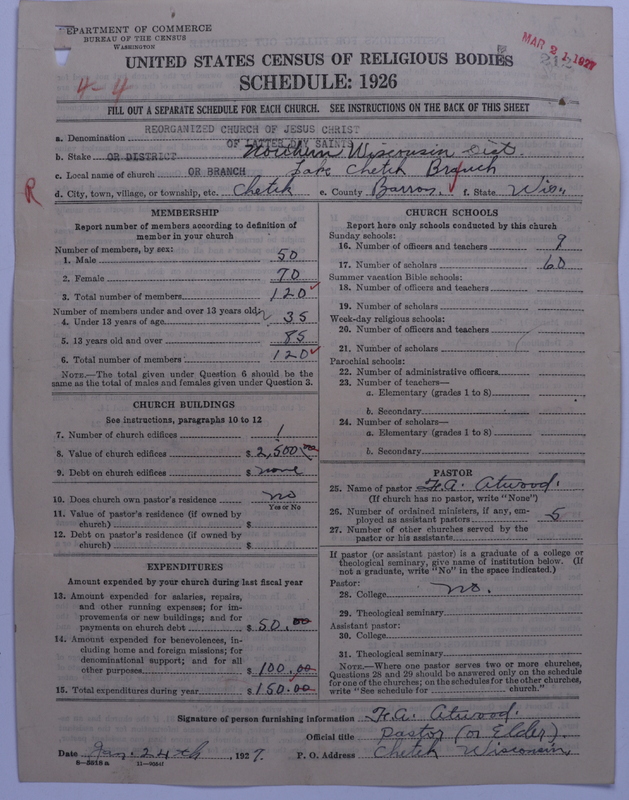 DEPARTMENT OF COMMERCE
BUREAU OF THE CENSUS
WASHINGTON
MAR 21 1927
212
UNITED STATES CENSUS OF RELIGIOUS BODIES
SCHEDULE: 1926
4-4
FILL OUT A SEPARATE SCHEDULE FOR EACH CHURCH. SEE INSTRUCTIONS ON THE BACK OF THIS SHEET
a. Denomination REORGANIZED CHURCH OF JESUS CHRIST
OF LATTER DAY SAINTS
b. Stake OR DISTRICT Northern Wisconsin Dist.
c. Local name of church OR BRANCH Lake Chetek Branch
R
d. City, town, village, or township, etc. Chetek e. County Barron. f. State Wis.
MEMBERSHIP
Report number of members according to definition of
member in your church
Number of members, by sex:
1. Male 50
2. Female 70
3. Total number of members 120
Number of members under and over 13 years old:
4. Under 13 years of age 35
5. 13 years old and over 85
6. Total number of members 120
NOTE.—The total given under Question 6 should be the
same as the total of males and females given under Question 3.
CHURCH BUILDINGS
See instructions, paragraphs 10 to 12
7. Number of church edifices 1
8. Value of church edifices $ 2,500.00
9. Debt on church edifices $ none
10. Does church own pastor's residence no
Yes or No
11. Value of pastor's residence (if owned by
church) $
12. Debt on pastor's residence (if owned by
church) $
EXPENDITURES
Amount expended by your church during last fiscal year
13. Amount expended for salaries, repairs,
and other running expenses; for im-
provements or new buildings; and for
payments on church debt $ 50.00
14. Amount expended for benevolences, in-
cluding home and foreign missions; for
denominational support; and for all
other purposes $ 100.00
15. Total expenditures during year $ 150.00
CHURCH SCHOOLS
Report here only schools conducted by this church
Sunday schools:
16. Number of officers and teachers 9
17. Number of scholars 60
Summer vacation Bible schools:
18. Number of officers and teachers
19. Number of scholars
Week-day religious schools:
20. Number of officers and teachers
21. Number of scholars
Parochial schools:
22. Number of administrative officers
23. Number of teachers—
a. Elementary (grades 1 to 8)
b. Secondary
24. Number of scholars—
a. Elementary (grades 1 to 8)
b. Secondary
PASTOR
25. Name of pastor F.A. Atwood.
(If church has no pastor, write "None")
26. Number of ordained ministers, if any, em-
ployed as assistant pastors 5
27. Number of other churches served by the
pastor or his assistants
If pastor (or assistant pastor) is a graduate of a college or
theological seminary, give name of institution below. (If
not a graduate, write "No" in the space indicated.)
Pastor:
28. College no.
29. Theological seminary
Assistant pastor:
30. College
31. Theological seminary
NOTE.—Where one pastor serves two or more churches,
Questions 28 and 29 should be answered only on the schedule
for one of the churches; on the schedules for the other churches,
write "See schedule for church."
Signature of person furnishing information F.A. Atwood.
Official title Pastor (or Elder).
Date Jan. 24th, 1927. P. O. Address Chetek Wisconsin
8-5518a